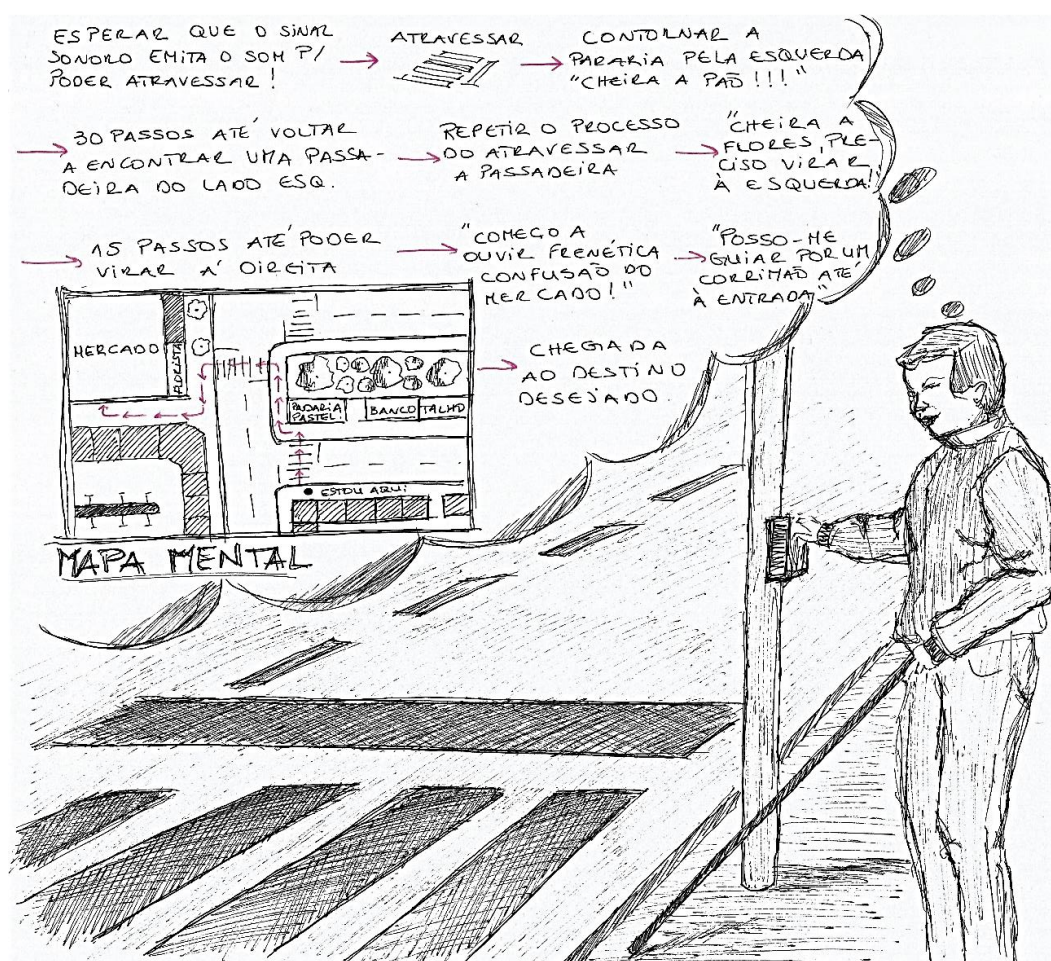 ESPERAR QUE O SINAL
SONORO EMITA O SOM P/
PODER ATRAVESSAR!
ATRAVESSAR
CONTORNAR A
PADARIA PELA ESQUERDA
"CHEIRA A PAÕ!!!"
30 PASSOS ATÉ VOLTAR
A ENCONTRAR UMA PASSA-
DEIRA DO LADO ESQ.
REPETIR O PROCESSO
DO ATRAVESSAR
A PASSADEIRA
"CHEIRA A
FLORES, PRE-
CISO VIRAR
À ESQUERDA!"
15 PASSOS ATÉ PODER
VIRAR Á DIREITA
"COMEÇO A
OUVIR FRENÉTICA
CONFUSÃO DO
MERCADO!"
"POSSO-ME
GUIAR POR UM
CORRIMAÕ ATÉ
À ENTRADA"
CHEGADA
AO DESTINO
DESEJADO.
MERCADO
FLORISTA
PADARIA
PASTEL.
BANCO
TALHO
ESTOU AQUI
MAPA MENTAL